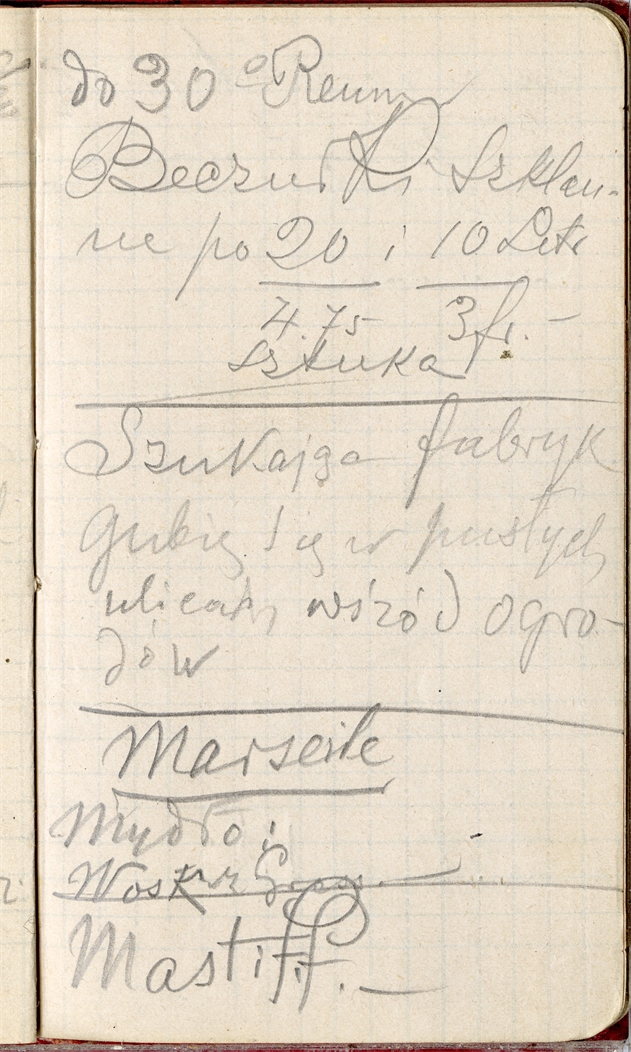 do 30° Reum
Beczułki Szklan-
ne po 20 i 10 Litr
4.75 3 fr. –
sztuka
Szukając fabryk
gubię się w pustych
ulicach wśród ogro-
dów
Marseile
Mydło i
Wosk w
Mastiff. –